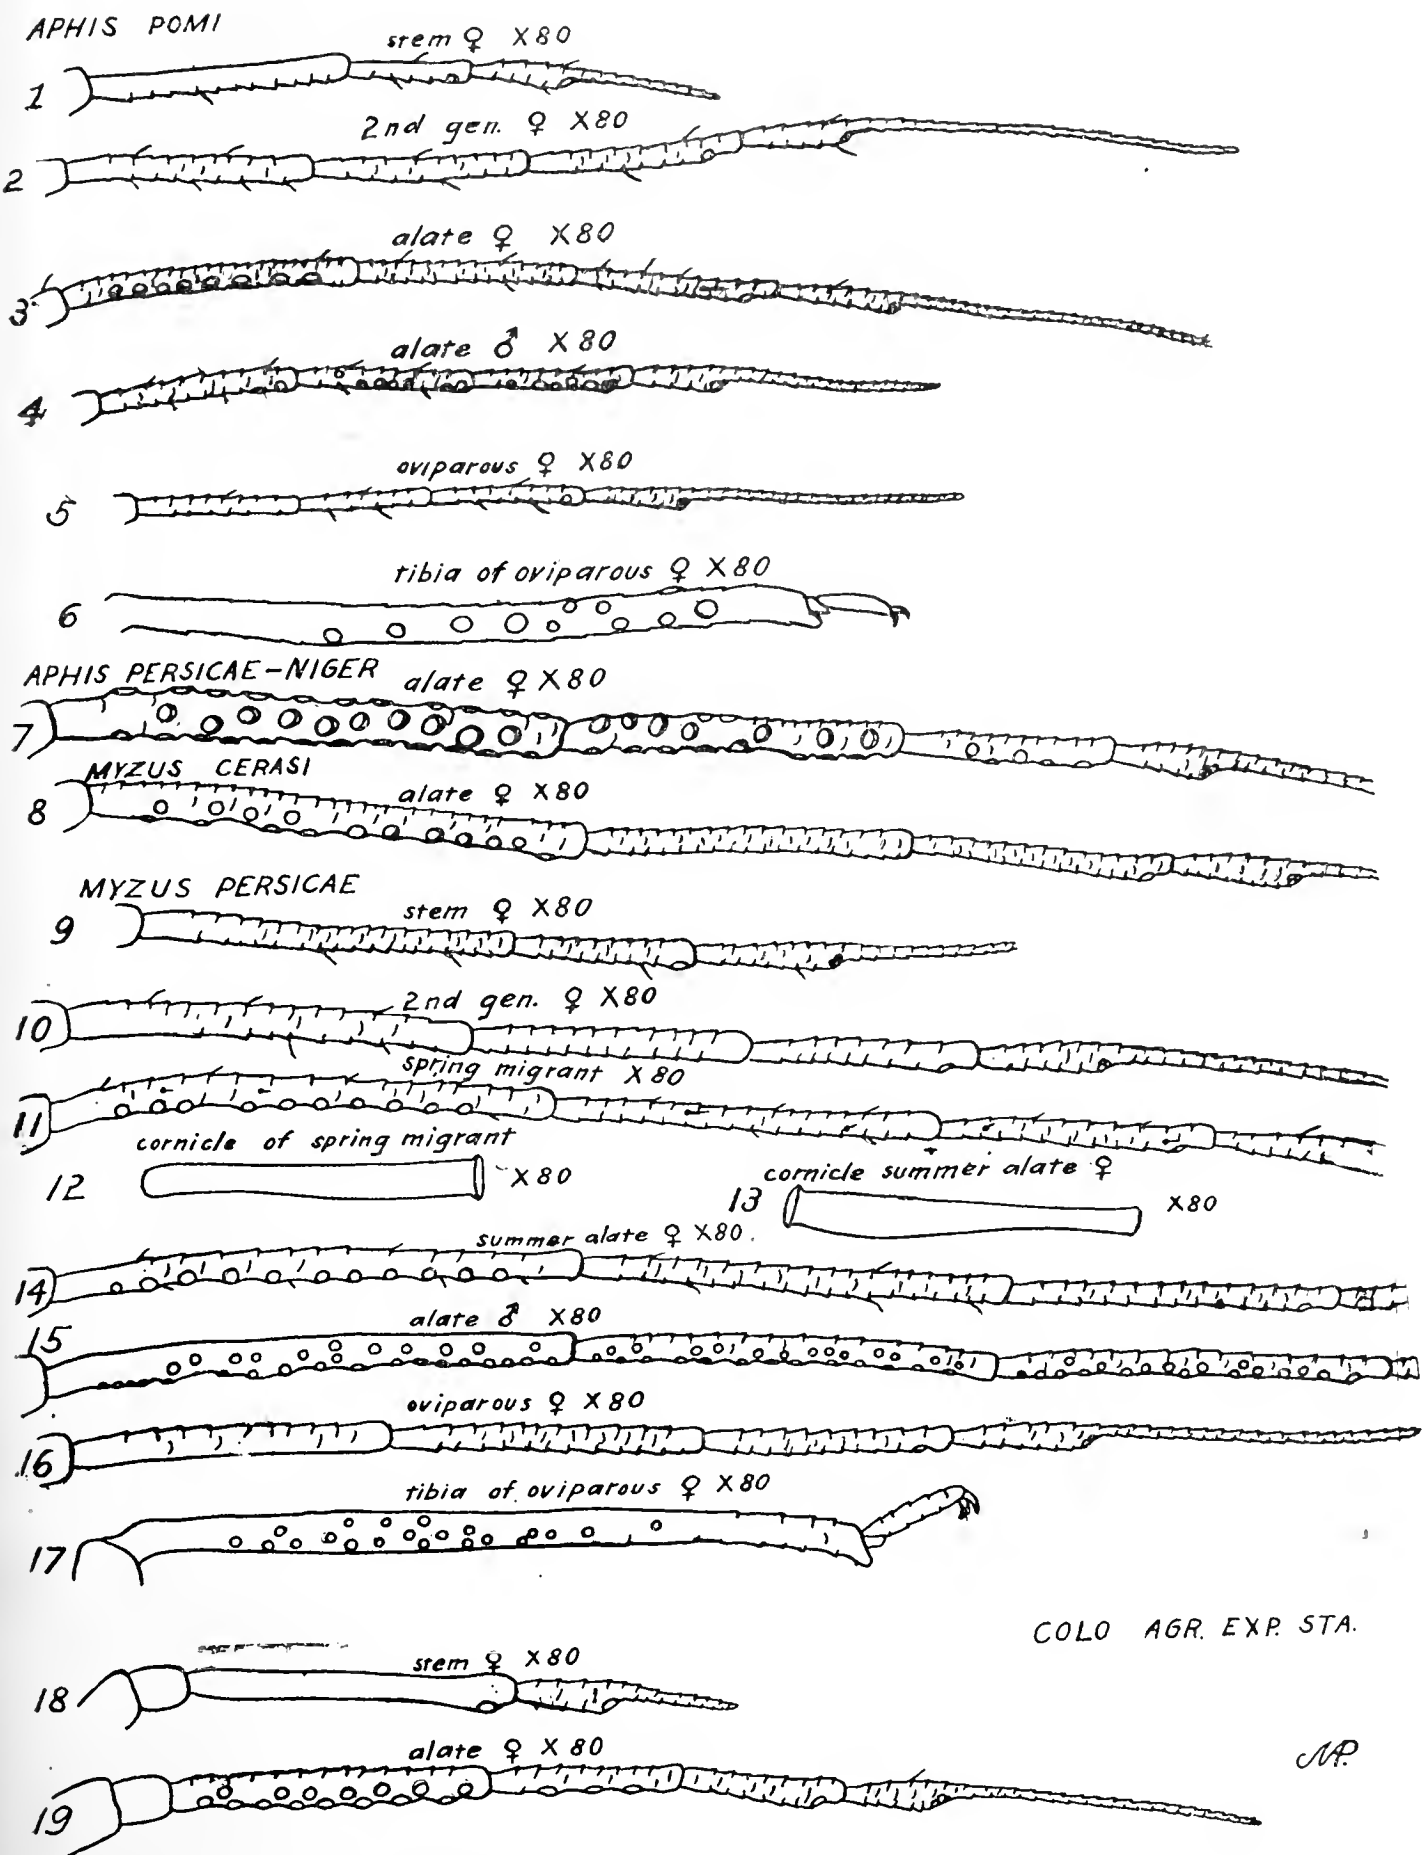 APHIS POMI
stem ♀ X80
1
2nd gen. ♀ X80
2
alate ♀ X80
3
alate ♂ X80
4
oviparous ♀ X80
5
tibia of oviparous ♀ X80
6
APHIS PERSICAE-NIGER
alate ♀ X80
7
MYZUS CERASI
alate ♀ X80
8
MYZUS PERSICAE
stem ♀ X80
9
2nd gen. ♀ X80
10
spring migrant X80
11
cornicle of spring migrant
12 X80
cornicle summer alate ♀
13 X80
summer alate ♀ X80.
14
alate ♂ X80
15
oviparous ♀ X80
16
tibia of oviparous ♀ X80
17
COLO AGR. EXP. STA.
stem ♀ X80
18
alate ♀ X80
19